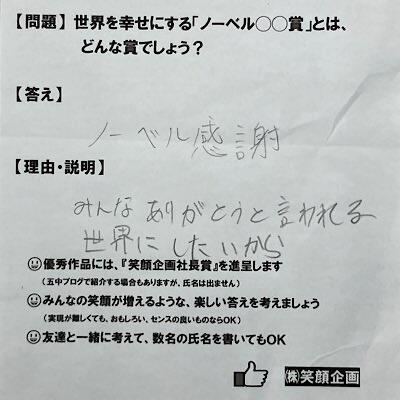 【問題】 世界を幸せにする「ノーベル◯◯賞」とは、
どんな賞でしょう？
【答え】
ノーベル感謝
【理由・説明】
みんなありがとうと言われる
世界にしたいから
優秀作品には、『笑顔企画社長賞』を進呈します
(五中ブログで紹介する場合もありますが、氏名は出ません)
みんなの笑顔が増えるような、楽しい答えを考えましょう
(実現が難しくても、おもしろい、センスの良いものならOK)
友達と一緒に考えて、数名の氏名を書いてもOK
㈱笑顔企画